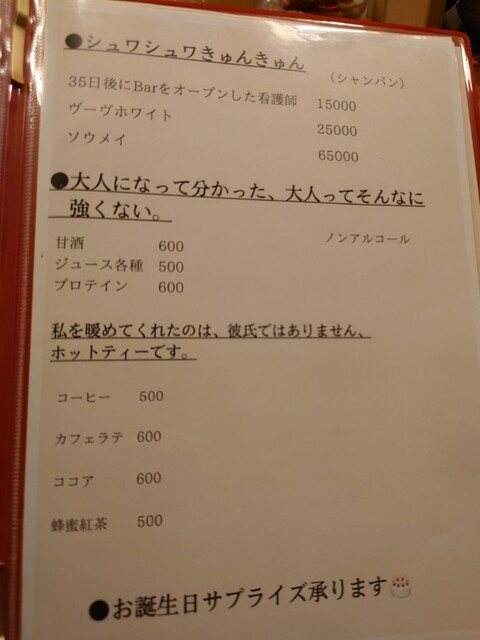 ●シュワシュワきゅんきゅん
（シャンパン）
35日後にBarをオープンした看護師 15000
ヴーヴホワイト 25000
ソウメイ 65000
●大人になって分かった、大人ってそんなに
強くない。
ノンアルコール
甘酒 600
ジュース各種 500
プロテイン 600
私を暖めてくれたのは、彼氏ではありません、
ホットティーです。
コーヒー 500
カフェラテ 600
ココア 600
蜂蜜紅茶 500
●お誕生日サプライズ承ります🎂